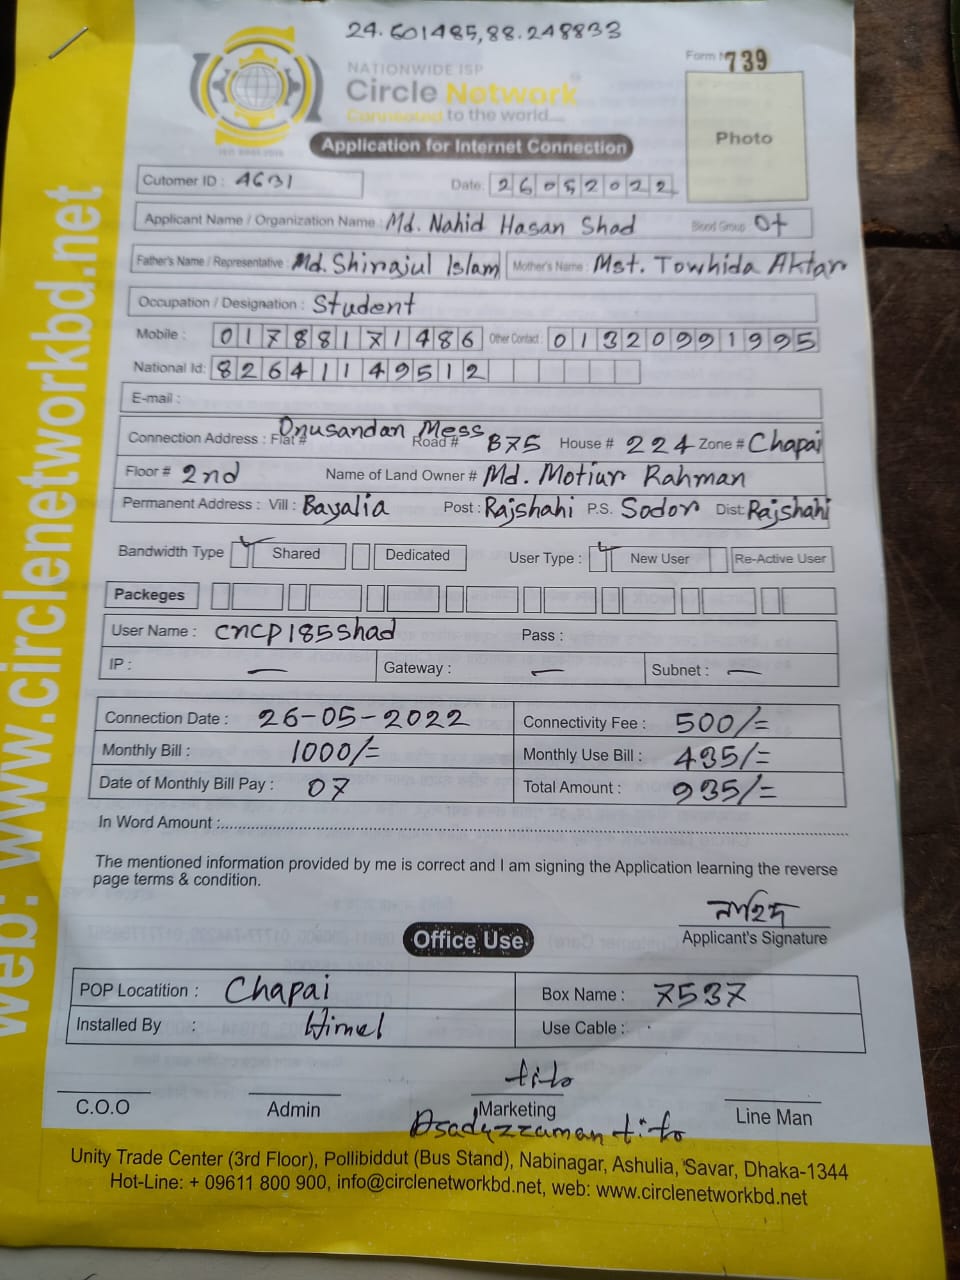 24.601485,88.248833
Form № 739
NATIONWIDE ISP
Circle Network
Connected to the world....
Photo
Application for Internet Connection
Cutomer ID : 4631 Date: 26052022
Applicant Name / Organization Name : Md. Nahid Hasan Shad Blood Group : O+
Father's Name / Representative : Md. Shirajul Islam Mother's Name : Mst. Towhida Aktar
Occupation / Designation : Student
Mobile : 01788171486 Other Contact : 01320991995
National Id: 82641149512
E-mail :
Connection Address : Flat # Onusandan Mess Road # B75 House # 224 Zone # Chapai
Floor # 2nd Name of Land Owner # Md. Motiur Rahman
Permanent Address : Vill : Bayalia Post : Rajshahi P.S. Sodor Dist: Rajshahi
Bandwidth Type Shared Dedicated User Type : New User Re-Active User
Packeges
User Name : cncp185shad Pass :
IP : — Gateway : — Subnet : —
Connection Date : 26-05-2022 Connectivity Fee : 500/=
Monthly Bill : 1000/= Monthly Use Bill : 435/=
Date of Monthly Bill Pay : 07 Total Amount : 935/=
In Word Amount :
The mentioned information provided by me is correct and I am signing the Application learning the reverse
page terms & condition.
নাহিদ
Applicant's Signature
Office Use
POP Locatition : Chapai Box Name : 7537
Installed By : Himel Use Cable :
tito
C.O.O Admin Marketing Line Man
Asaduzzaman tito
Unity Trade Center (3rd Floor), Pollibiddut (Bus Stand), Nabinagar, Ashulia, Savar, Dhaka-1344
Hot-Line: + 09611 800 900, info@circlenetworkbd.net, web: www.circlenetworkbd.net
web: www.circlenetworkbd.net